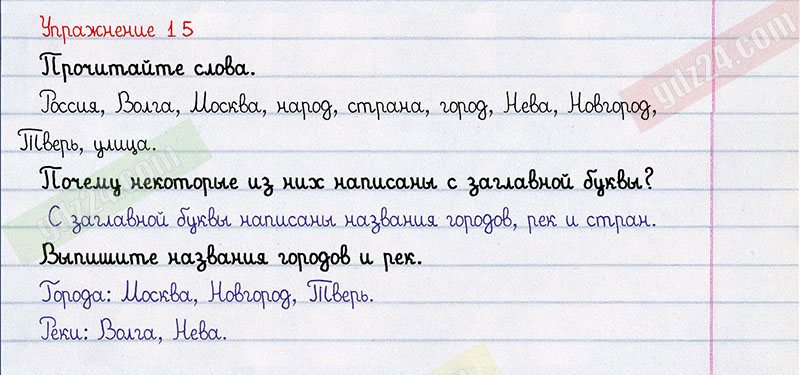 Упражнение 15
gdz24.com
Прочитайте слова.
Россия, Волга, Москва, народ, страна, город, Нева, Новгород,
Тверь, улица.
Почему некоторые из них написаны с заглавной буквы?
gdz24.com
С заглавной буквы написаны названия городов, рек и стран.
Выпишите названия городов и рек.
Города: Москва, Новгород, Тверь.
Реки: Волга, Нева.